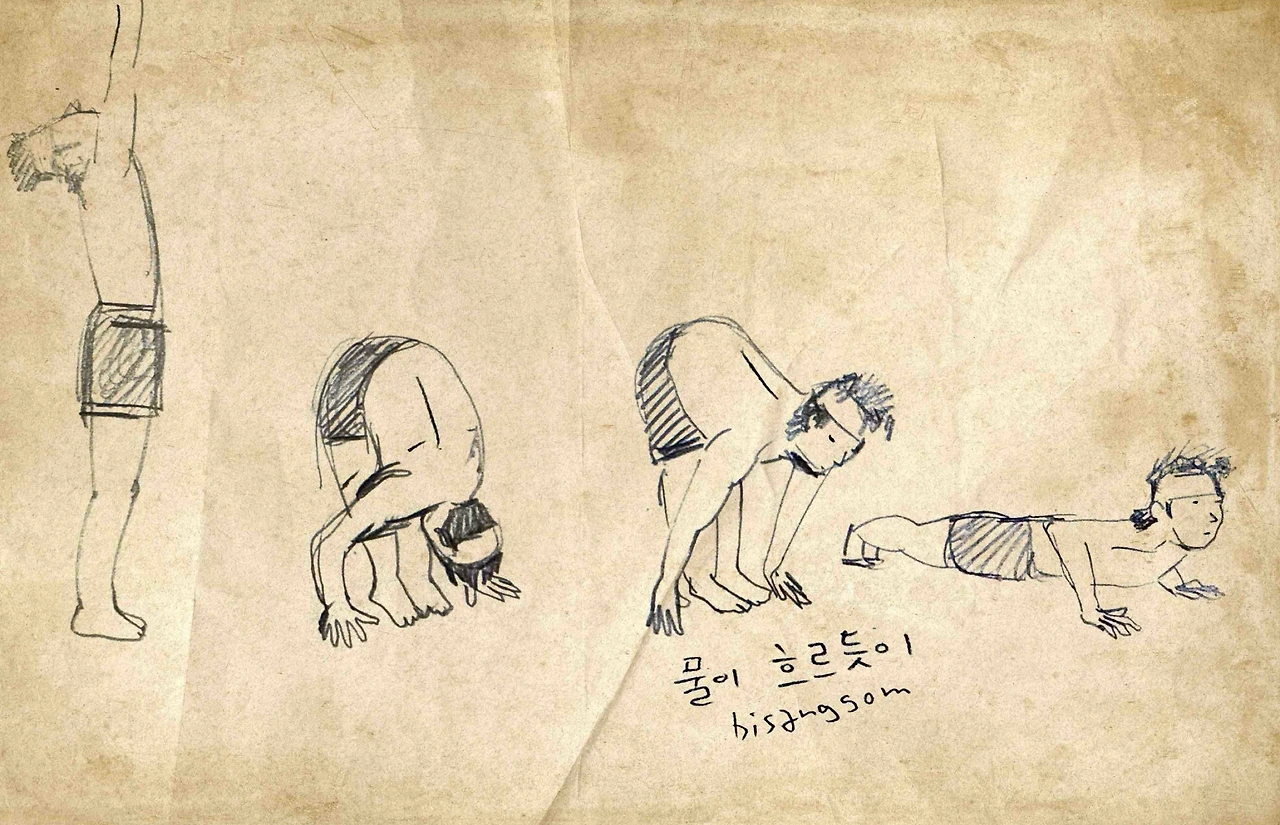 물이 흐르듯이
bisangsom